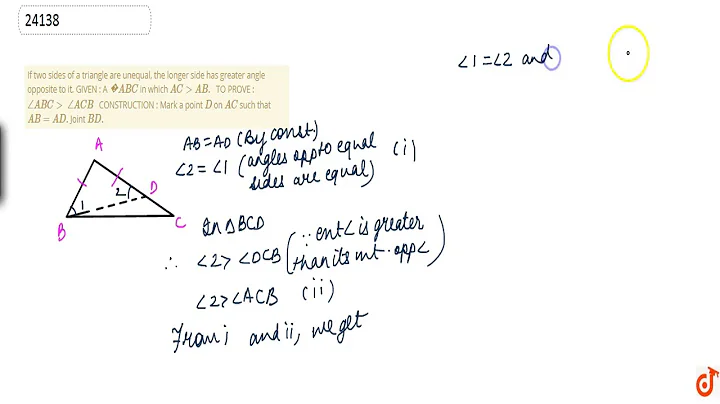 24138
If two sides of a triangle are unequal, the longer side has greater angle
opposite to it. GIVEN : A �ABC in which AC > AB. TO PROVE :
∠ABC > ∠ACB CONSTRUCTION : Mark a point D on AC such that
AB = AD. Joint BD.
A
B
C
D
1
2
AB = AD (By const.)
∠2 = ∠1 (angles opp to equal
sides are equal) (i)
In ΔBCD
∴ ∠2 > ∠DCB (∵ ent∠ is greater
than its int. opp ∠)
∠2 > ∠ACB (ii)
From i and ii, we get
∠1 = ∠2 and
doubtnut